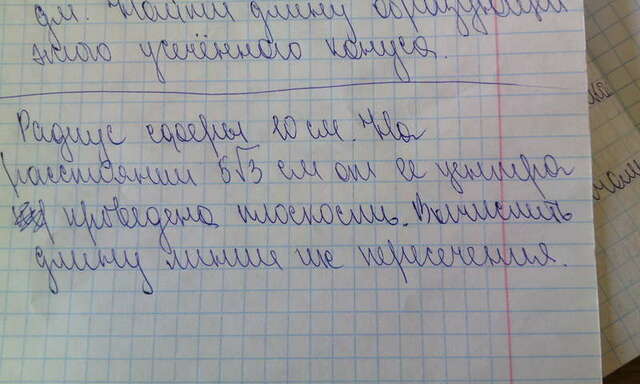 дм. Найти длину образующей
этого усечённого конуса.
Радиус сферы 10 см. На
расстоянии 5√3 см от её центра
проведена плоскость. Вычислить
длину линии их пересечения.